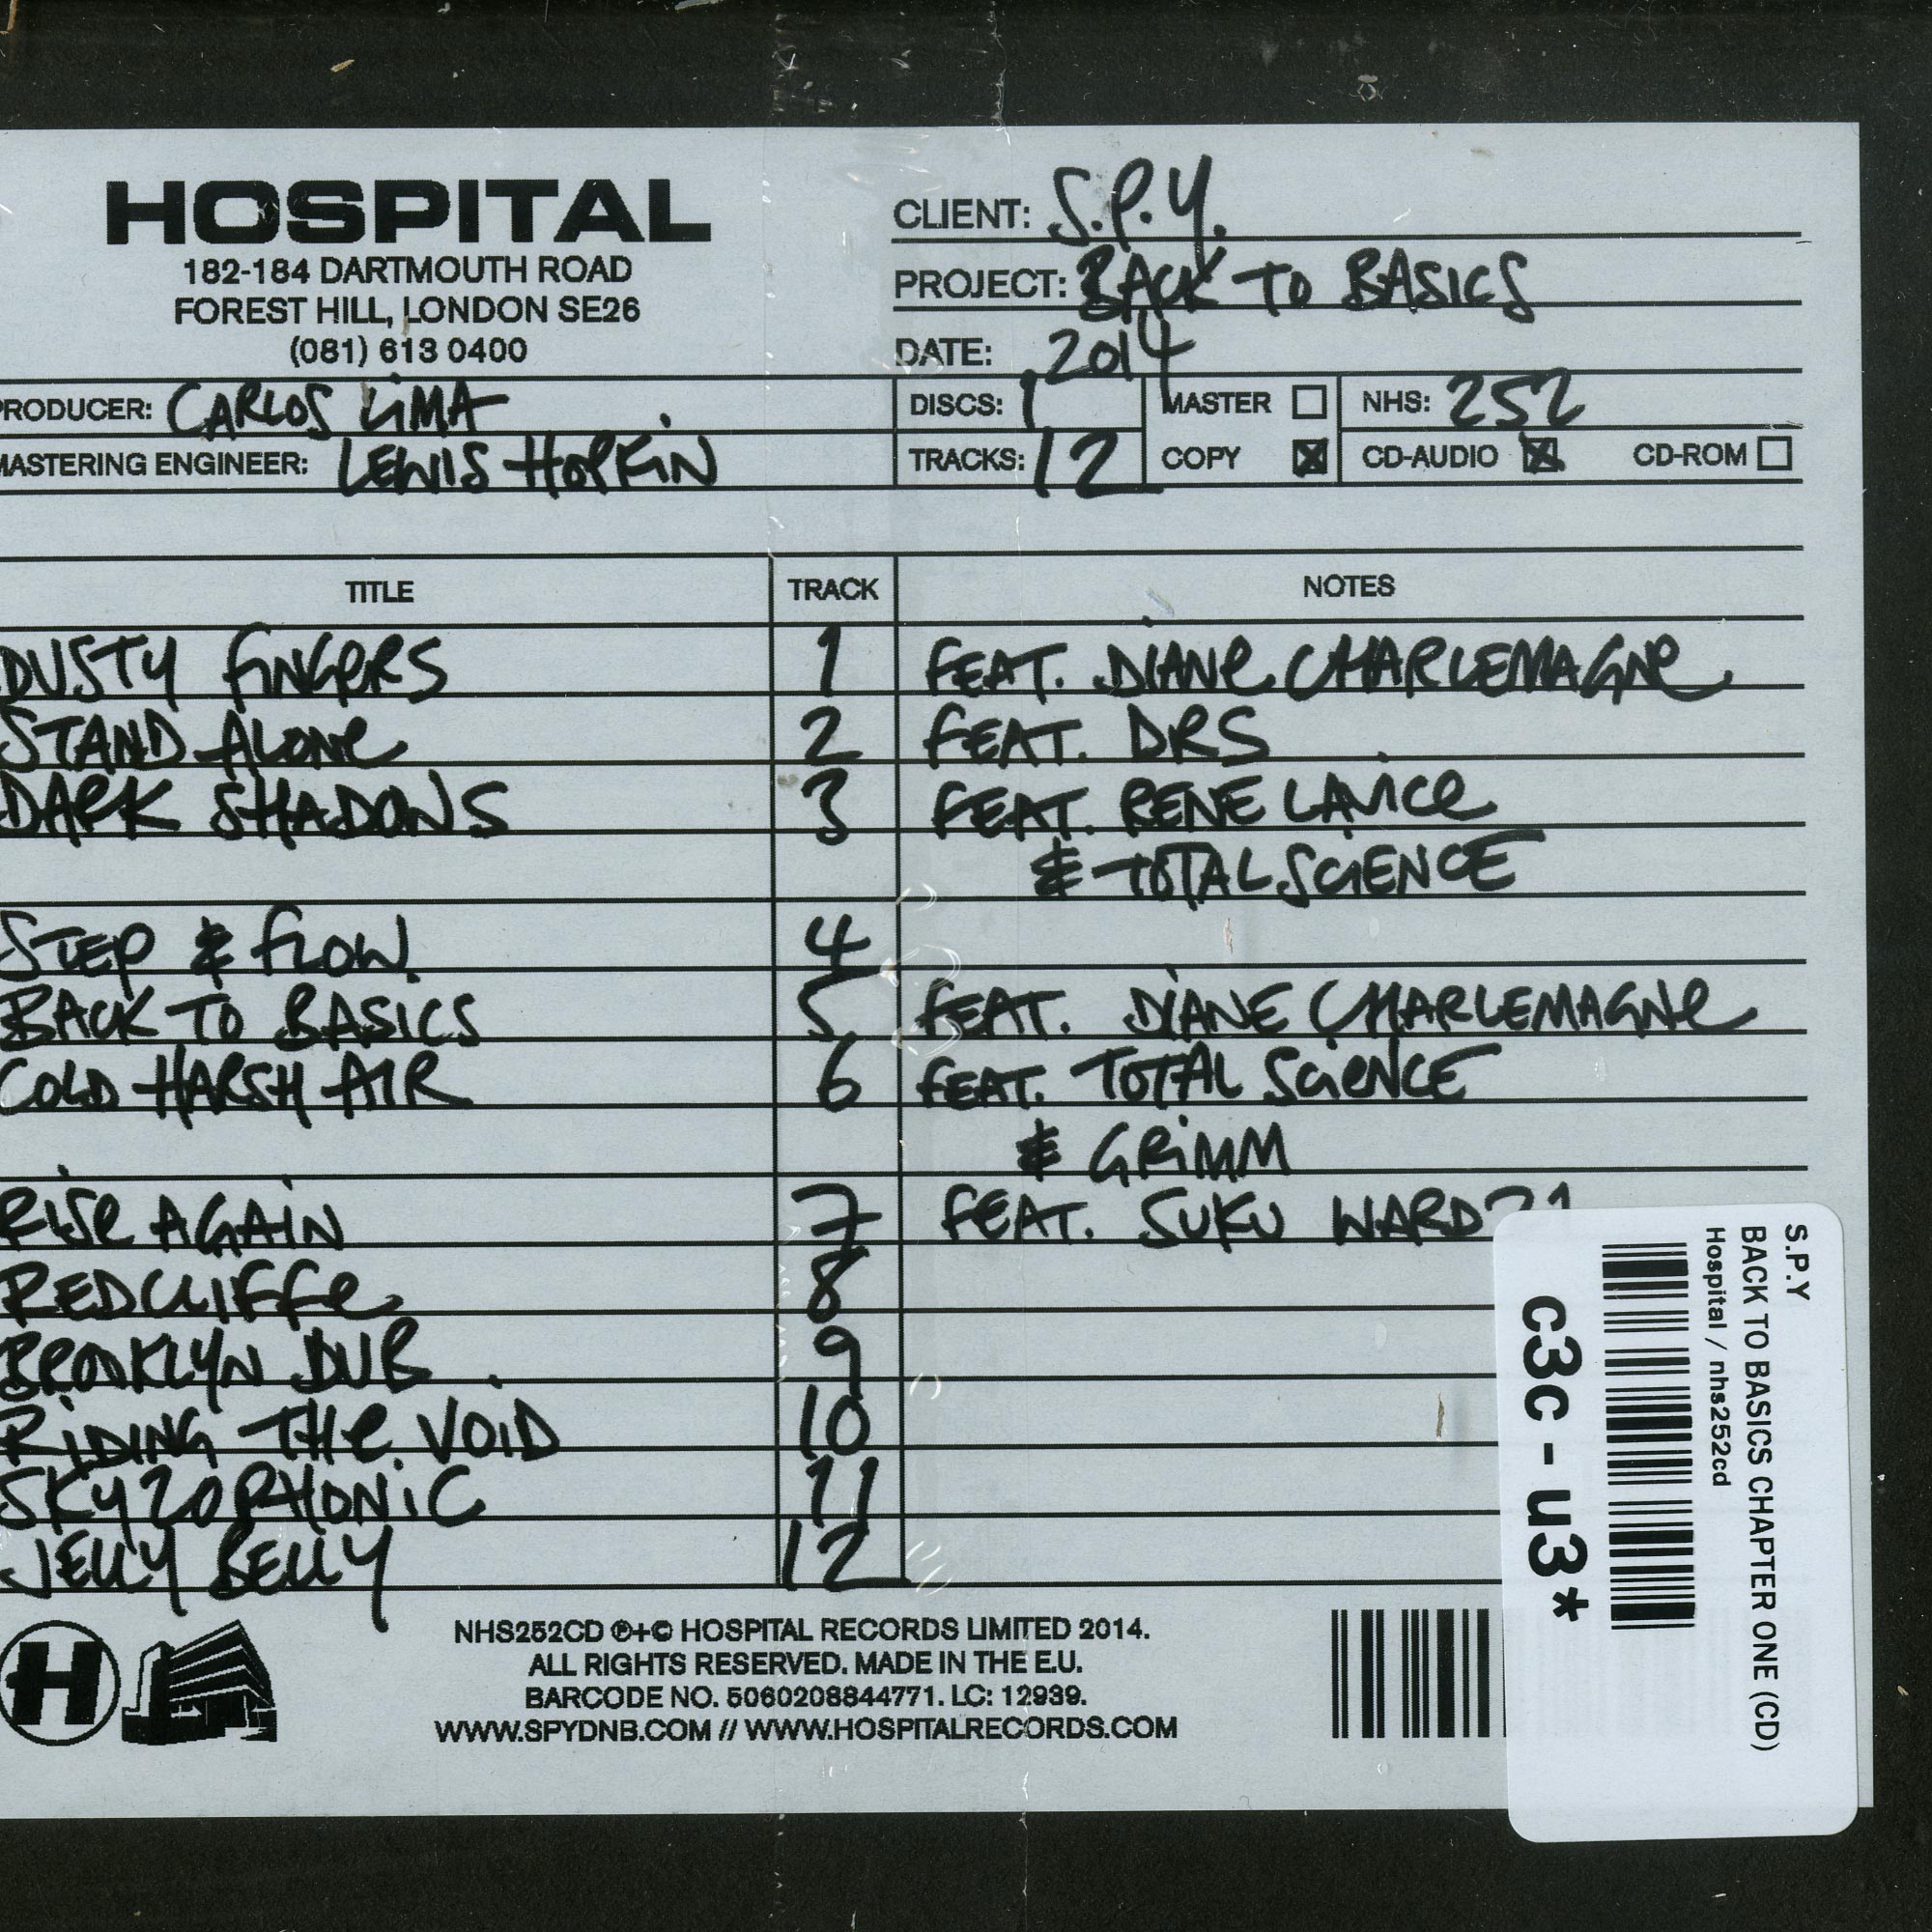 HOSPITAL
182-184 DARTMOUTH ROAD
FOREST HILL, LONDON SE26
(081) 613 0400
CLIENT: S.P.Y.
PROJECT: BACK TO BASICS
DATE: 2014
PRODUCER: CARLOS LIMA
MASTERING ENGINEER: LEWIS HOPKIN
DISCS: 1
TRACKS: 12
MASTER
COPY
NHS: 252
CD-AUDIO
CD-ROM
TITLE TRACK NOTES
DUSTY FINGERS 1 FEAT. DIANE CHARLEMAGNE
STAND ALONE 2 FEAT. DRS
DARK SHADOWS 3 FEAT. RENE LAVICE
& TOTAL SCIENCE
STEP & FLOW 4
BACK TO BASICS 5 FEAT. DIANE CHARLEMAGNE
COLD HARSH AIR 6 FEAT. TOTAL SCIENCE
& GRIMM
RISE AGAIN 7 FEAT. SUKU WARD 21
REDCLIFFE 8
BROOKLYN DUB 9
RIDING THE VOID 10
SKYZOPHONIC 11
JELLY BELLY 12
H
NHS252CD ℗+© HOSPITAL RECORDS LIMITED 2014.
ALL RIGHTS RESERVED. MADE IN THE E.U.
BARCODE NO. 5060208844771. LC: 12939.
WWW.SPYDNB.COM // WWW.HOSPITALRECORDS.COM
S.P.Y
BACK TO BASICS CHAPTER ONE (CD)
Hospital / nhs252cd
c3c - u3*